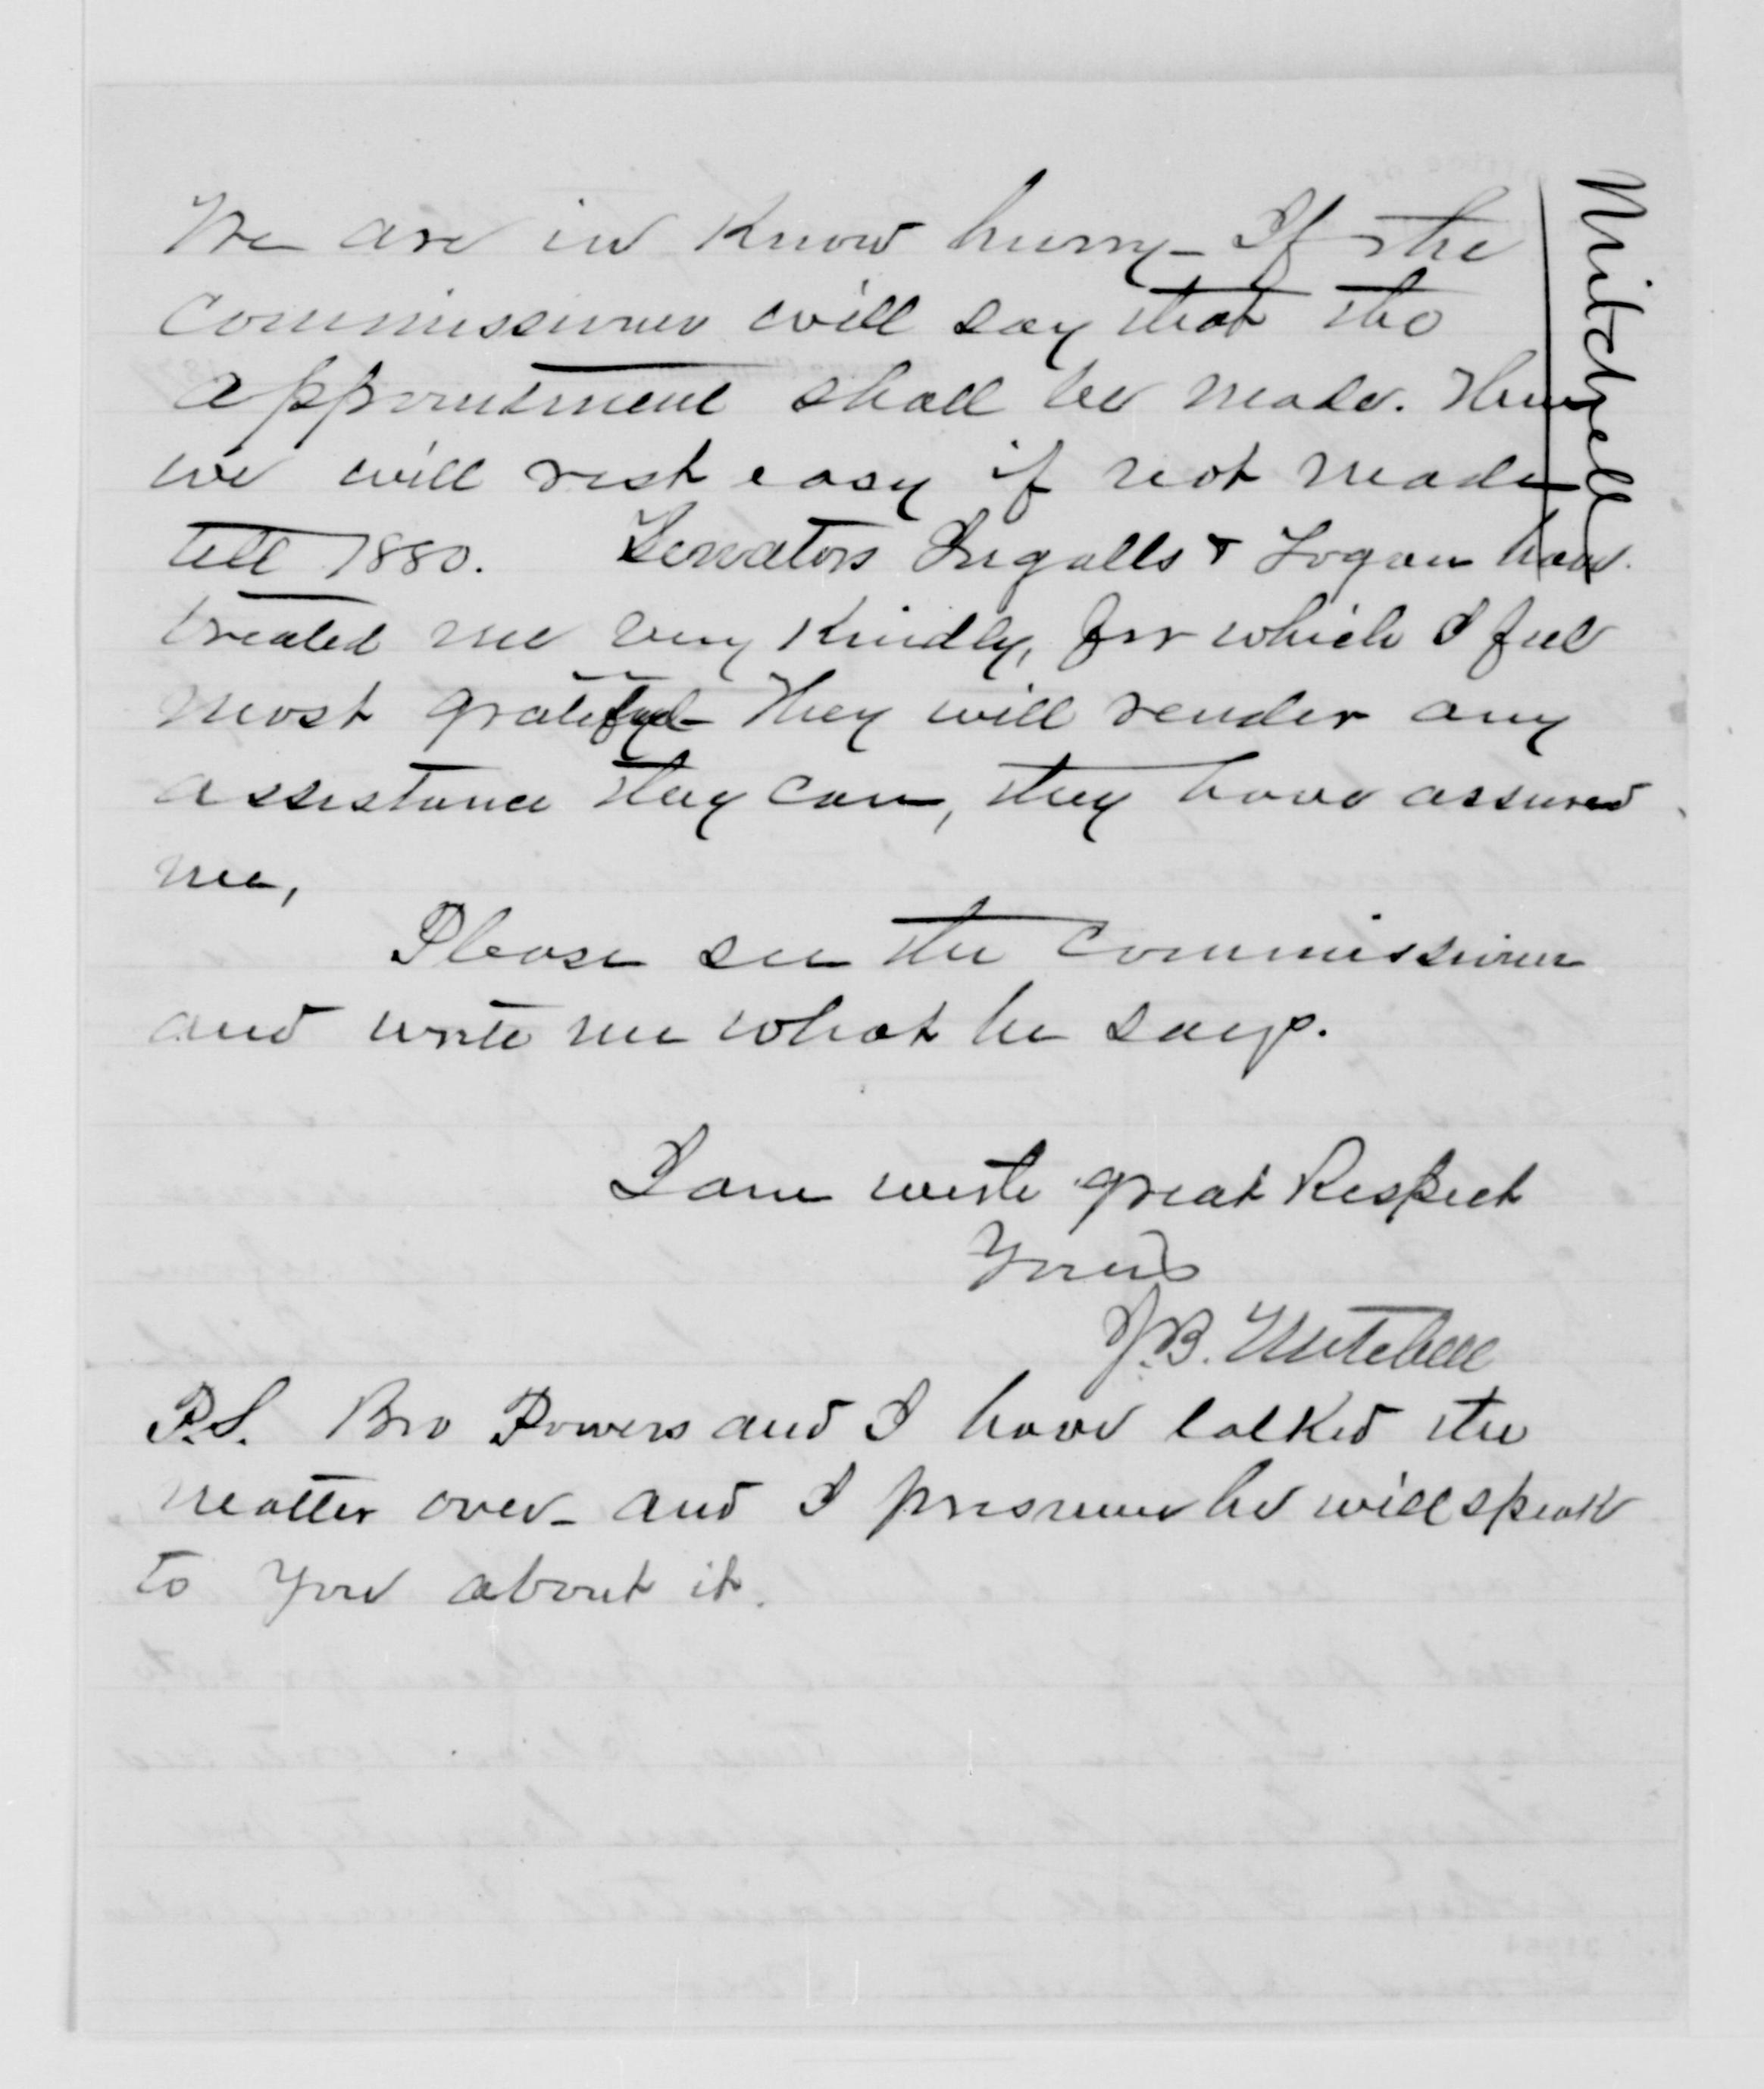 We are in Know hurry - If the
Commissioner will say that the
appointment shall be made. Then
we will rest easy if not made
till 1880. Senators Ingalls & Logan have
treated me very Kindly, for which I feel
most grateful - They will render any
assistance they can, they have assured
me,
Please see the Commissioner
and write me what he says.
I am with great Respect
Yours
J.B. Mitchell
P.S. Bro Powers and I have talked the
matter over - and I presume he will speak
to you about it.
Mitchell